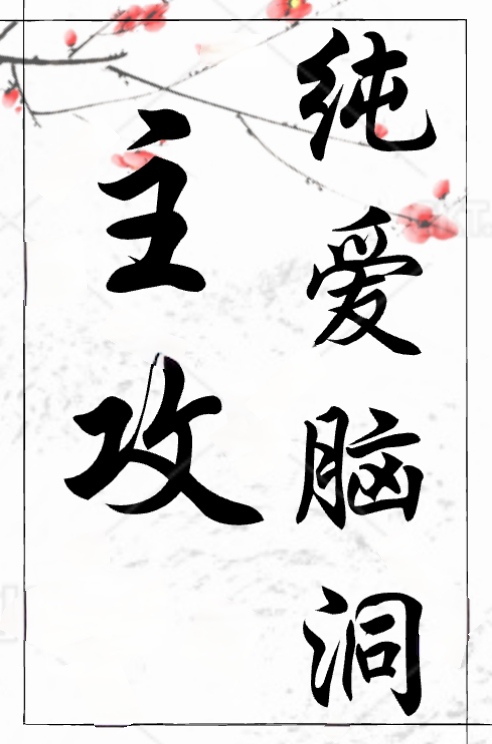 纯爱脑洞
主攻